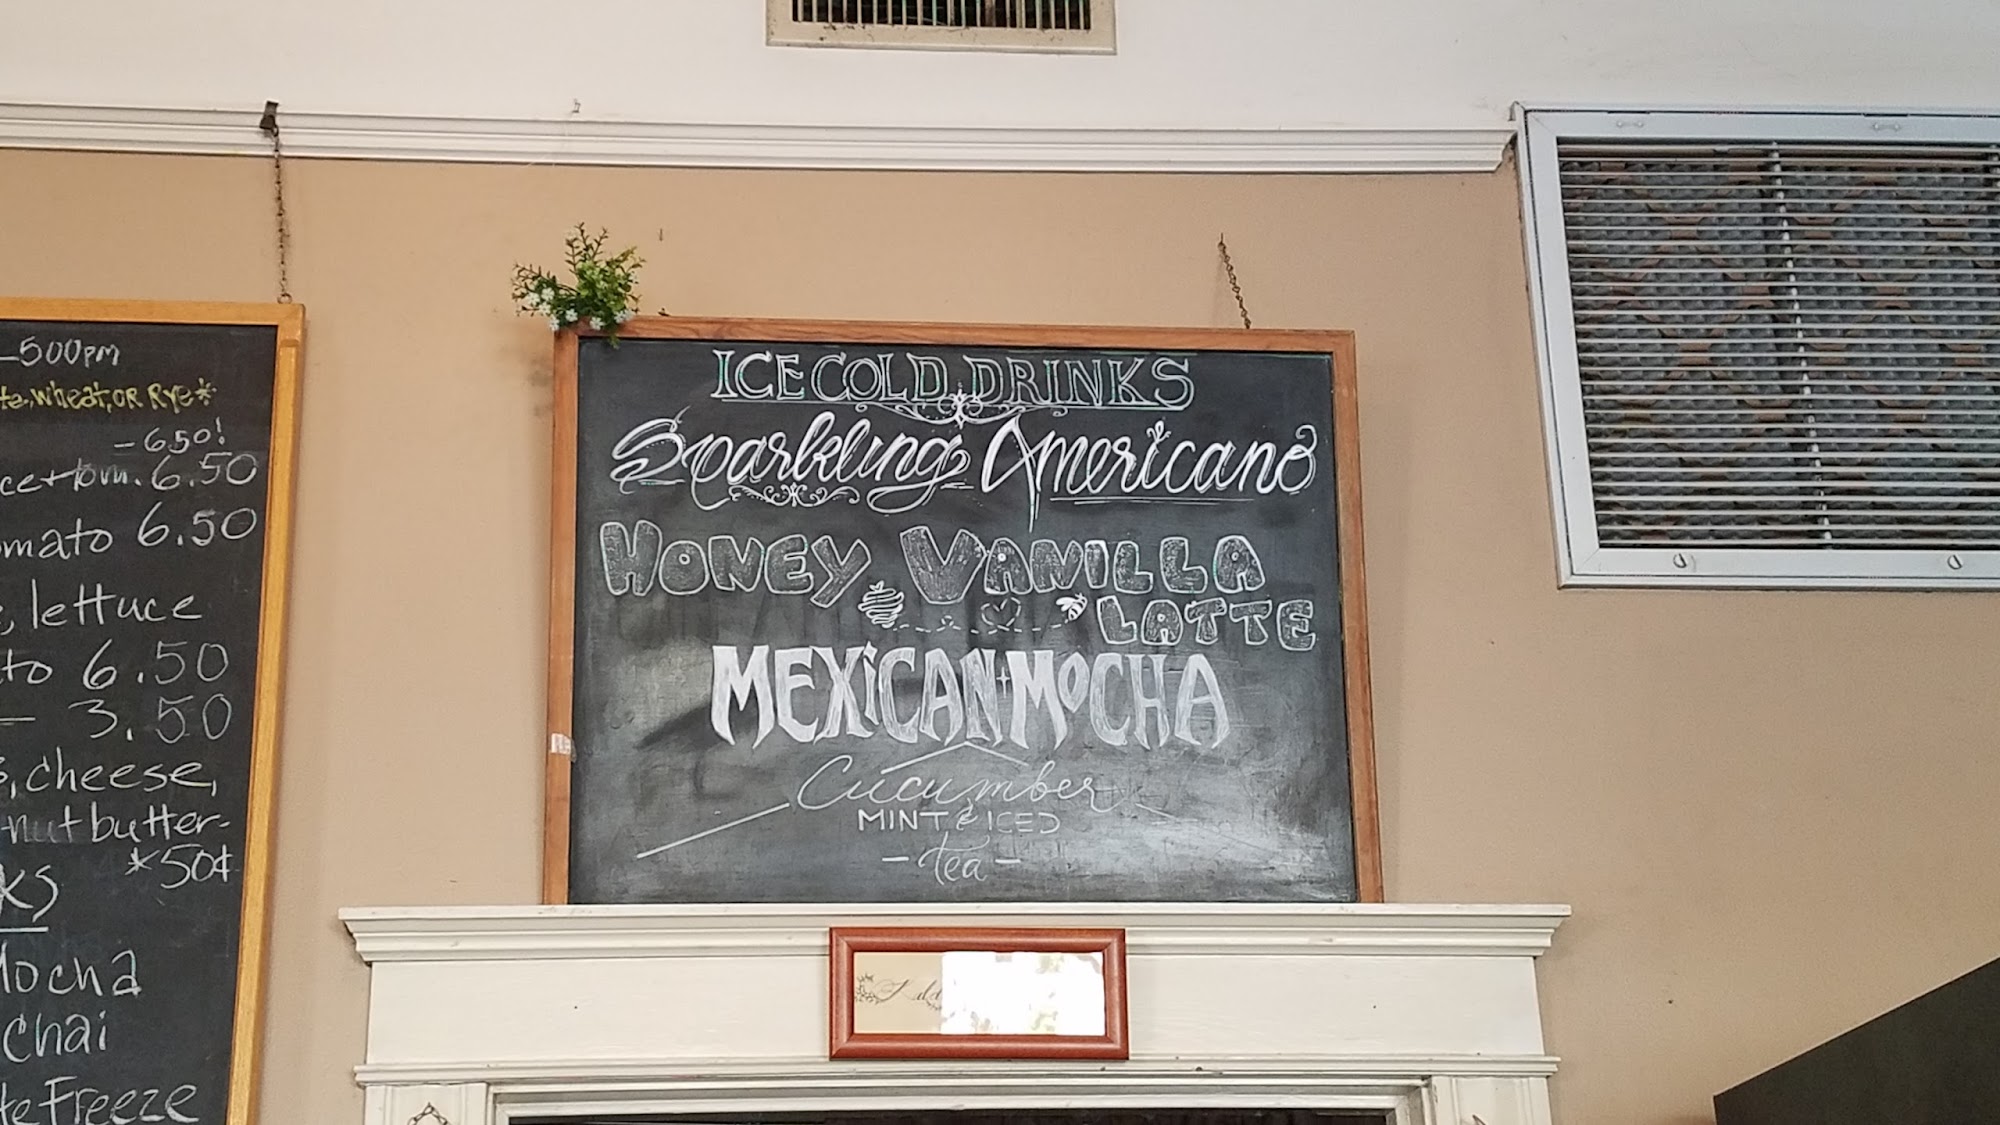 -500pm
wheat, or Rye*
- 6.50!
tom. 6.50
6.50
lettuce
6.50
- 3.50
cheese,
butter-
*50¢
Mocha
Chai
Freeze
ICE COLD DRINKS
Sparkling Americano
HONEY VANILLA
LATTE
MEXiCAN + MOCHA
Cucumber
MINT & ICED
- tea -